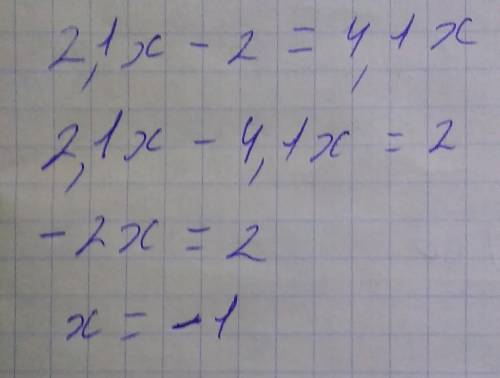 2,1x - 2 = 4,1x
2,1x - 4,1x = 2
-2x = 2
x = -1